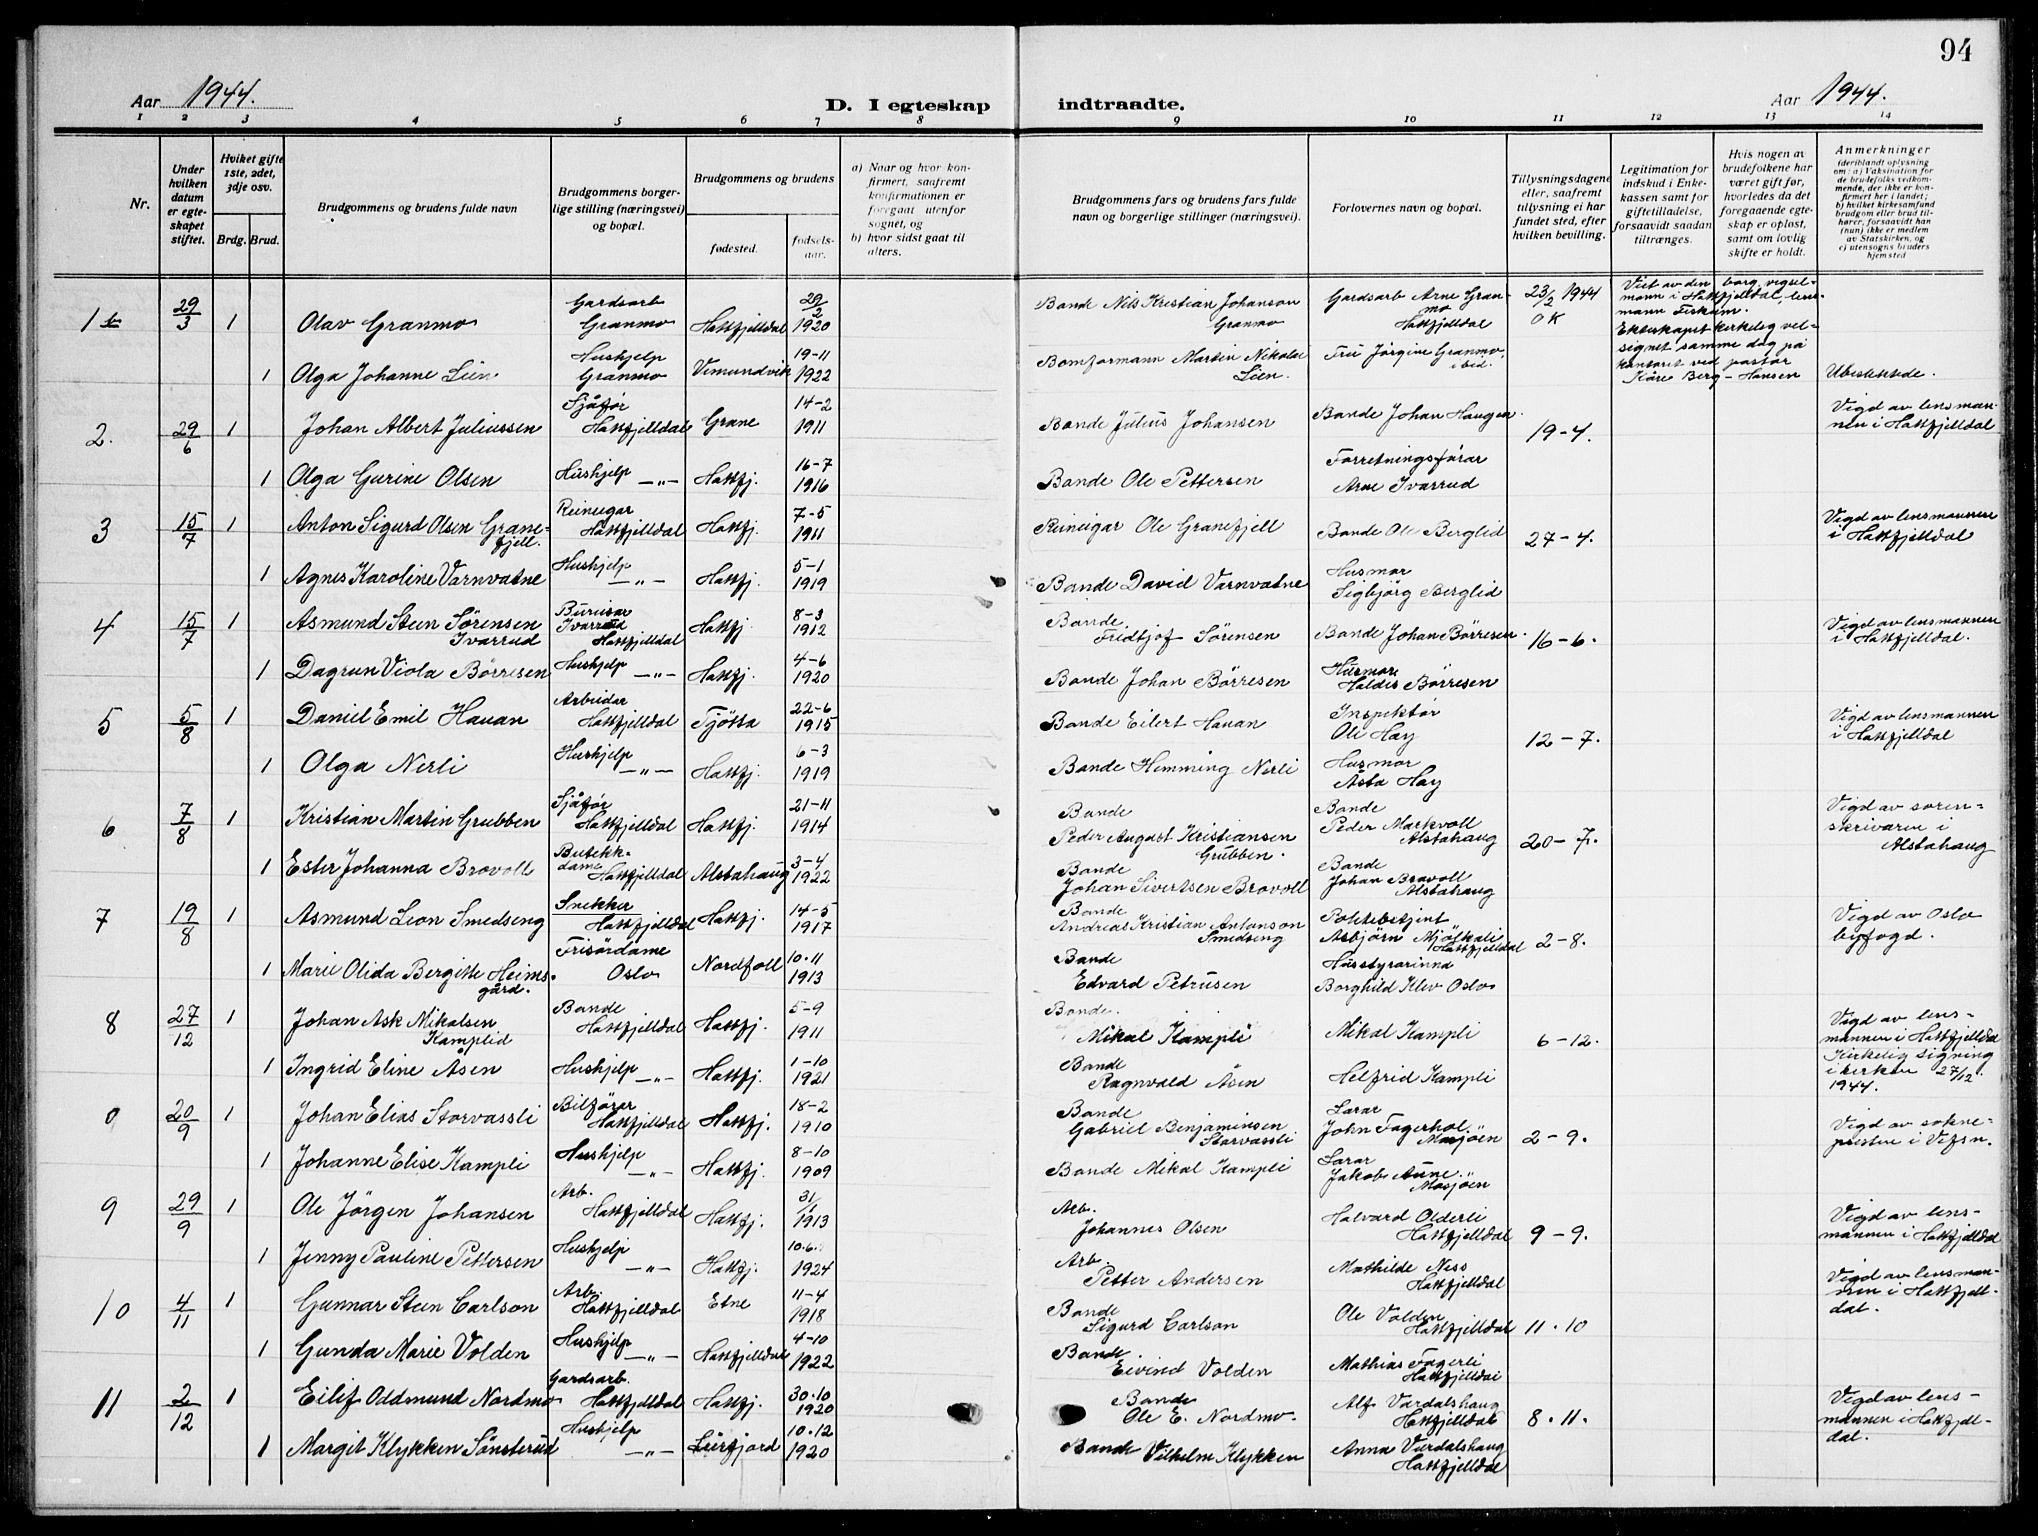 94
Aar 1944.
D. I egteskap indtraadte.
Aar 1944.
1 2 3 4 5 6 7 8 9 10 11 12 13 14
Nr.
Under hvilken datum er egteskapet stiftet.
Hviket gifte 1ste, 2det, 3dje osv.
Brdg. Brud.
Brudgommens og brudens fulde navn
Brudgommens borgerlige stilling (næringsvei) og bopæl.
Brudgommens og brudens
fødested.
fødselsaar.
a) Naar og hvor konfirmert, saafremt konfirmationen er foregaat utenfor sognet, og
b) hvor sidst gaat til alters.
Brudgommens fars og brudens fars fulde navn og borgerlige stillinger (næringsvei).
Forlovernes navn og bopæl.
Tillysningsdagene eller, saafremt tillysning ei har fundet sted, efter hvilken bevilling.
Legitimation for indskud i Enkekassen samt for giftetilladelse, forsaavidt saadan tiltrænges.
Hvis nogen av brudefolkene har været gift før, hvorledes da det foregaaende egteskap er opløst, samt om lovlig skifte er holdt.
Anmerkninger (deriblandt oplysning om: a) Vaksination for de brudefolks vedkommende, der ikke er konfirmert her i landet; b) hvilket kirkesamfund brudgom eller brud tilhører, forsaavidt han (hun) ikke er medlem av Statskirken, og c) utensogns bruders hjemsted
29/3 1 Olav Granmo Gardsarb Granmo Hattfjelldal 29/2 1920 Bonde Nils Kristian Johanson Granmo Gardsarb Arne Granmo Hattfjelldal 23/2 1944 OK Viet av den borg. vigselmann i Hattfjelldal, lensmann Fiskum. Ekteskapet kirkelig velsignet samme dag på kontoret ved pastor Kåre Berg-Hansen
1 Olga Johanne Lien Hushjelp Granmo Vemundvik 19-11 1922 Bomformann Martin Nikolai Lien. Fru Jørgine Granmo, ibid.
2. 29/6 1 Johan Albert Juliussen Sjåfør Hattfjelldal Grane 14-2 1911 Bonde Julius Johansen Bonde Johan Haugen. 19-4. Vigd av lensmannen i Hattfjelldal
1 Olga Gurine Olsen Hushjelp -"- Hattfj. 16-7 1916 Bonde Ole Pettersen Forretningsfører Arne Ivarrud
3 15/7 1 Anton Sigurd Olsen Granefjell. Reineigar Hattfjelldal Hattfj. 7-5 1911 Reineigar Ole Granefjell Bonde Ole Berglid 27-4. Vigd av lensmannen i Hattfjelldal
1 Agnes Karoline Varnvatne Hushjelp -"- Hattfj. 5-1 1919 Bonde David Varnvatne Husmor Sigbjørg Berglid
4 15/7 1 Asmund Steen Sørensen Ivarrud Buruisar Ivarrud Hattfjelldal Hattfj. 8-3 1912 Bonde. Fredtjof Sørensen Bonde Johan Børresen. 16-6. Vigd av lensmannen i Hattfjelldal.
1 Dagrun Viola Børresen Hushjelp -"- Hattfj. 4-6 1920 Bonde Johan Børresen Husmor Haldis Børresen
5 5/8 1 Daniel Emil Hauan Arbeidar Hattfjelldal Tjøtta 22-6 1915 Bonde Eilert Hauan Inspektør Ole Hay 12-7. Vigd av lensmannen i Hattfjelldal
1 Olga Nerli Hushjelp -"- Hattfj. 6-3 1919 Bonde Hemming Nerli Husmor Åsta Hay
6 7/8 1 Kristian Martin Grubben Sjåfør Hattfjelldal Hattfj. 21-11 1914 Bonde Peder August Kristiansen Grubben. Bonde Peder Markvoll Alstahaug 20-7. Vigd av sorenskrivaren i Alstahaug
1 Ester Johanna Brovoll Butikkdame Hattfjelldal Alstahaug 3-4 1922 Bonde Johan Sivertsen Brovoll Bonde Johan Brovoll Alstahaug
7 19/8 1 Asmund Leon Smedseng Snekker Hattfjelldal Hattfj. 14-5 1917 Bonde Andreas Kristian Antonson Smedseng Asbjørn Mjølkali Hattfjelldal 2-8. Vigd av Oslo byfogd.
1 Marie Olida Bergitte Heimsgård. Frisørdame Oslo Nordfoll 10.11 1913 Bonde Edvard Petrusen Husstyrarinna Borghild Klev Oslo
8 27/12 1 Johan Ask Mikalsen Kamplid Bonde Hattfjelldal Hattfj. 5-9 1911 Bonde. Mikal Kampli Mikal Kampli 6-12. Vigd av lensmannen i Hattfjelldal Kirkelig signing i kirken 27/12. 1944.
1 Ingrid Eline Åsen Hushjelp -"- Hattfj. 1-10 1921 Bonde Ragnvald Åsen Helfrid Kampli
0 20/9 1 Johan Elias Storvassli Bilførar Hattfjelldal Hattfj. 18-2 1910 Bonde Gabriel Benjaminsen Storvassli Lærar John Fagerhol. Mosjøen 2-9. Vigd av soknepresten i Vefsn.
1 Johanne Elise Kampli Hushjelp -"- Hattfj. 8-10 1909 Bonde Mikal Kampli Lærar Jakob Aune. Mosjøen
9 29/9 1 Ole Jørgen Johansen Arb. Hattfjelldal Hattfj. 31/1 1913 Arb. Johannes Olsen Halvard Olderli Hattfjelldal 9-9. Vigd av lensmannen i Hattfjelldal
1 Jenny Pauline Pettersen Hushjelp -"- Hattfj. 10.6. 1924 Arb. Petter Andersen Mathilde Ness Hattfjelldal
10 4/11 1 Gunnar Steen Carlson Arb. Hattfjelldal Etne 11-4 1918 Bonde Sigurd Carlson Ole Volden Hattfjelldal 11.10 Vigd av lensmannen i Hattfjelldal.
1 Gunda Marie Volden Hushjelp -"- Hattfjelldal 4-10 1922 Bonde. Eivind Volden Mathias Fagerli Hattfjelldal
11 2/12 1 Eilif Oddmund Nordmo Gardsarb. Hattfjelldal Hattfj. 30.10 1920 Bonde Ole E. Nordmo. Alf Vardalshaug Hattfjelldal 8.11. Vigd av lensmannen i Hattfjelldal.
1 Margit Klykken Sønsterud Hushjelp -"- Leirfjord 10.12 1920 Bonde Vilhelm Klykken Anna Vardalshaug Hattfjelldal